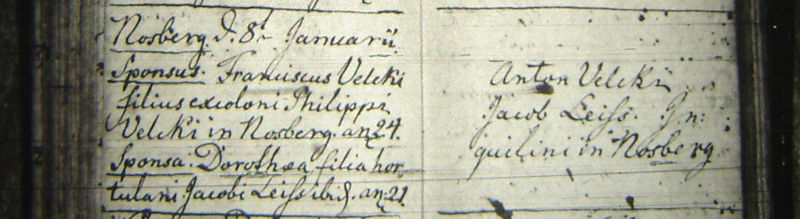 Nosberg d. 8t Januarii
Sponsus. Franciscus Velcki
filius excoloni Philippi
Velcki in Nosberg. an 24.
Sponsa. Dorothea filia hor
tulani Jacobi Leiss ibid. an: 21
Anton Velcki
Jacob Leiss. In:
quilini in Nosberg